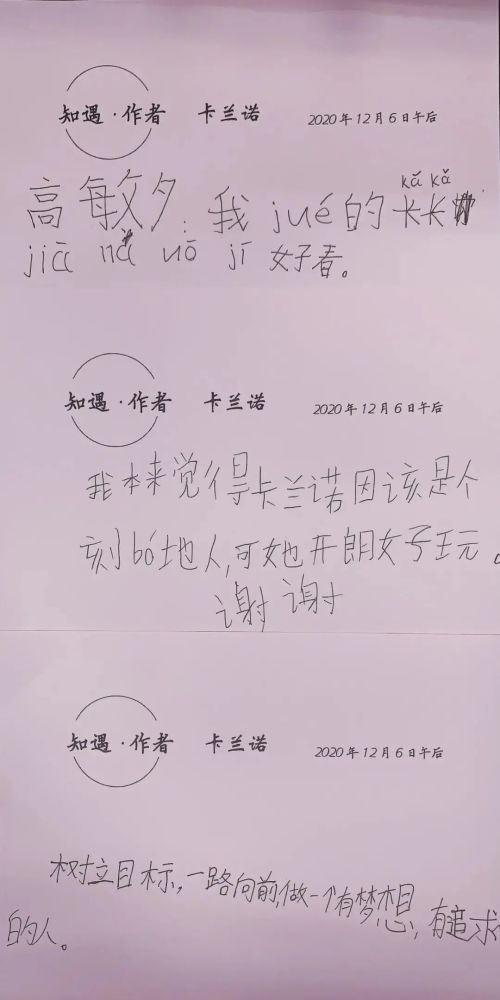 知遇·作者 卡兰诺 2020年12月6日午后
kǎ kǎ
高敏夕:我 jué 的 长长
jiā nà nuō jī 好看。
知遇·作者 卡兰诺 2020年12月6日午后
我本来觉得卡兰诺因该是个
刻bó地人,可她开朗好玩。
谢谢
知遇·作者 卡兰诺 2020年12月6日午后
树立目标,一路向前,做一个有梦想,有追求
的人。